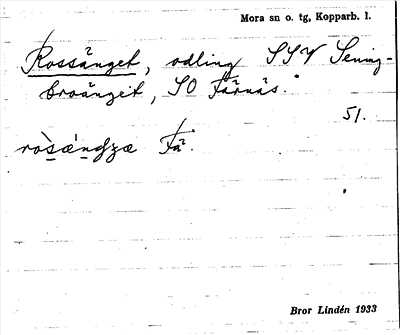 Mora sn o. tg, Kopparb. l.
Rossänget, odling SSV Sening-
broänget, SO Färnäs.
51.
Fä.
Bror Lindén 1933